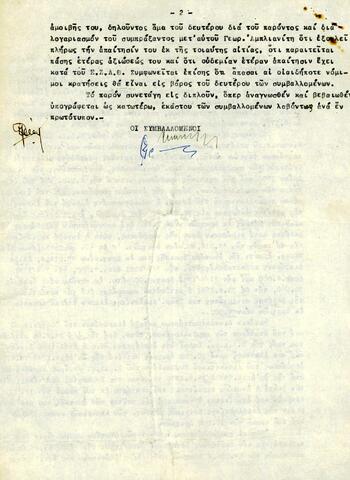 - 2 -
ἀμοιβῆς του, δηλοῦντος ἅμα τοῦ δευτέρου διά τοῦ παρόντος καί διά
λογαριασμόν τοῦ συμπράξαντος μετ'αὐτοῦ Γεωρ. Ἀμπλιανίτη ὅτι ἐξοφλεῖ
πλήρως τήν ἀπαίτησίν του ἐκ τῆς τοιαύτης αἰτίας, ὅτι παραιτεῖται
πάσης ἑτέρας ἀξιώσεώς του καί ὅτι οὐδεμίαν ἑτέραν ἀπαίτησιν ἔχει
κατά τοῦ Σ.Σ.Α.Θ. Συμφωνεῖται ἐπίσης ὅτι ἅπασαι αἱ οἱαιδήποτε νόμι-
μοι κρατήσεις θά εἶναι εἰς βάρος τοῦ δευτέρου τῶν συμβαλλομένων.
Τό παρόν συνετάγη εἰς διπλοῦν, ὅπερ ἀναγνωσθέν καί βεβαιωθέν
ὑπογράφεται ὡς κατωτέρω, ἑκάστου τῶν συμβαλλομένων λαβόντος ἀνά ἕν
πρωτότυπον.-
ΟΙ ΣΥΜΒΑΛΛΟΜΕΝΟΙ